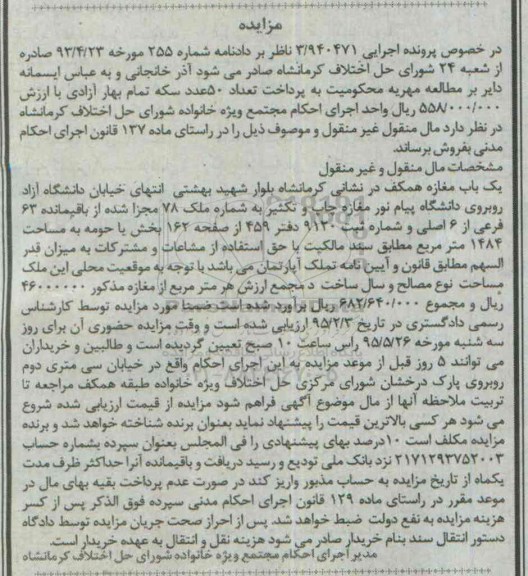 مزایده
در خصوص پرونده اجرایی ۳/۹۴۰۴۷۱ ناظر بر دادنامه شماره ۲۵۵ مورخه ۹۳/۴/۲۳ صادره
از شعبه ۲۴ شورای حل اختلاف کرمانشاه صادر می شود آذر خانجانی و به عباس ایسمانه
دایر بر مطالعه مهریه محکومیت به پرداخت تعداد ۵۰عدد سکه تمام بهار آزادی با ارزش
۵۵۸/۰۰۰/۰۰۰ ریال واحد اجرای احکام مجتمع ویژه خانواده شورای حل اختلاف کرمانشاه
در نظر دارد مال منقول غیر منقول و موصوف ذیل را در راستای ماده ۱۳۷ قانون اجرای احکام
مدنی بفروش برساند.
مشخصات مال منقول و غیر منقول
یک باب مغازه همکف در نشانی کرمانشاه بلوار شهید بهشتی انتهای خیابان دانشگاه آزاد
روبروی دانشگاه پیام نور مغازه چاپ و تکثیر به شماره ملک ۷۸ مجزا شده از باقیمانده ۶۳
فرعی از ۶ اصلی و شماره ثبت ۹۱۳۰ دفتر ۴۵۹ از صفحه ۱۶۲ بخش یا حومه به مساحت
۱۴۸۴ متر مربع مطابق سند مالکیت با حق استفاده از مشاعات و مشترکات به میزان قدر
السهم مطابق قانون و آیین نامه تملک آپارتمان می باشد با توجه به موقعیت محلی این ملک
مساحت نوع مصالح و سال ساخت د مجمع ارزش هر متر مربع از مغازه مذکور ۴۶۰۰۰۰۰۰
ریال و مجموع ۶۸۲/۶۴۰/۰۰۰ ریال برآورد شده است ضمنا مورد مزایده توسط کارشناس
رسمی دادگستری در تاریخ ۹۵/۲/۳ ارزیابی شده است و وقت مزایده حضوری آن برای روز
سه شنبه مورخه ۹۵/۵/۲۶ راس ساعت ۱۰ صبح تعیین گردیده است و طالبین و خریداران
می توانند ۵ روز قبل از موعد مزایده به این اجرای احکام واقع در خیابان سی متری دوم
روبروی پارک درخشان شورای مرکزی حل اختلاف ویژه خانواده طبقه همکف مراجعه تا
تربیت ملاحظه آنها از مال موضوع آگهی فراهم شود مزایده از قیمت ارزیابی شده شروع
می شود هر کسی بالاترین قیمت را پیشنهاد نماید بعنوان برنده شناخته خواهد شد و برنده
مزایده مکلف است ۱۰درصد بهای پیشنهادی را فی المجلس بعنوان سپرده بشماره حساب
۲۱۷۱۲۹۳۷۵۲۰۰۳ نزد بانک ملی تودیع و رسید دریافت و باقیمانده آنرا حداکثر ظرف مدت
یکماه از تاریخ مزایده به حساب مذبور واریز کند در صورت عدم پرداخت بقیه بهای مال در
موعد مقرر در راستای ماده ۱۲۹ قانون اجرای احکام مدنی سپرده فوق الذکر پس از کسر
هزینه مزایده به نفع دولت ضبط خواهد شد. پس از احراز صحت جریان مزایده توسط دادگاه
دستور انتقال سند بنام خریدار صادر می شود هزینه نقل و انتقال به عهده خریدار است.
مدیر اجرای احکام مجتمع ویژه خانواده شورای حل اختلاف کرمانشاه